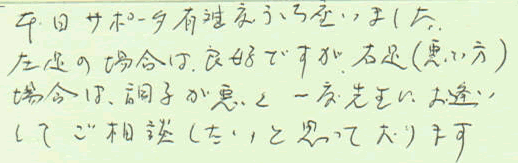 本日サポータ有難うございました
左足の場合は、良好ですが、右足(悪い方)
場合は、調子が悪いと一度先生にお逢い
してご相談したいと思っております